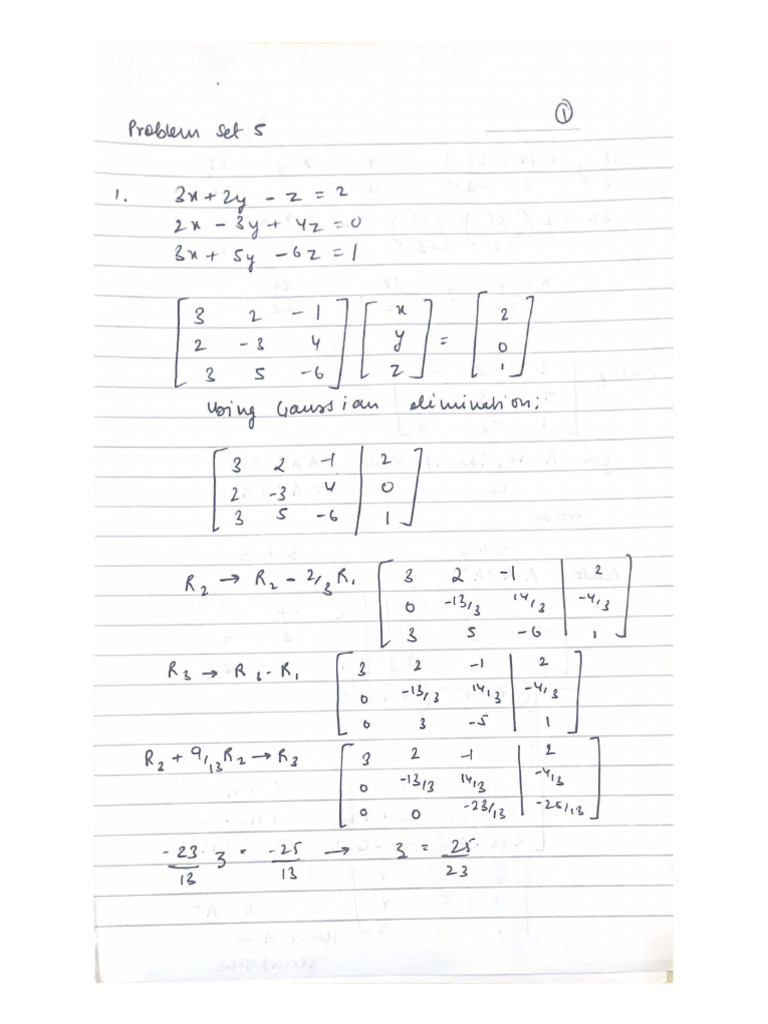 ①
Problem Set 5
1. 3x + 2y - z = 2
2x - 3y + 4z = 0
3x + 5y - 6z = 1
[3 2 -1] [x] [2]
[2 -3 4] [y] = [0]
[3 5 -6] [z] [1]
Using Gaussian elimination:
[3 2 -1 | 2]
[2 -3 4 | 0]
[3 5 -6 | 1]
R₂ → R₂ - 2/3 R₁ [3 2 -1 | 2]
[0 -13/3 14/3 | -4/3]
[3 5 -6 | 1]
R₃ → R₃ - R₁ [3 2 -1 | 2]
[0 -13/3 14/3 | -4/3]
[0 3 -5 | 1]
R₂ + 9/13 R₂ → R₃ [3 2 -1 | 2]
[0 -13/3 14/3 | -4/3]
[0 0 -23/13 | -25/13]
-23/13 z = -25/13 → z = 25/23